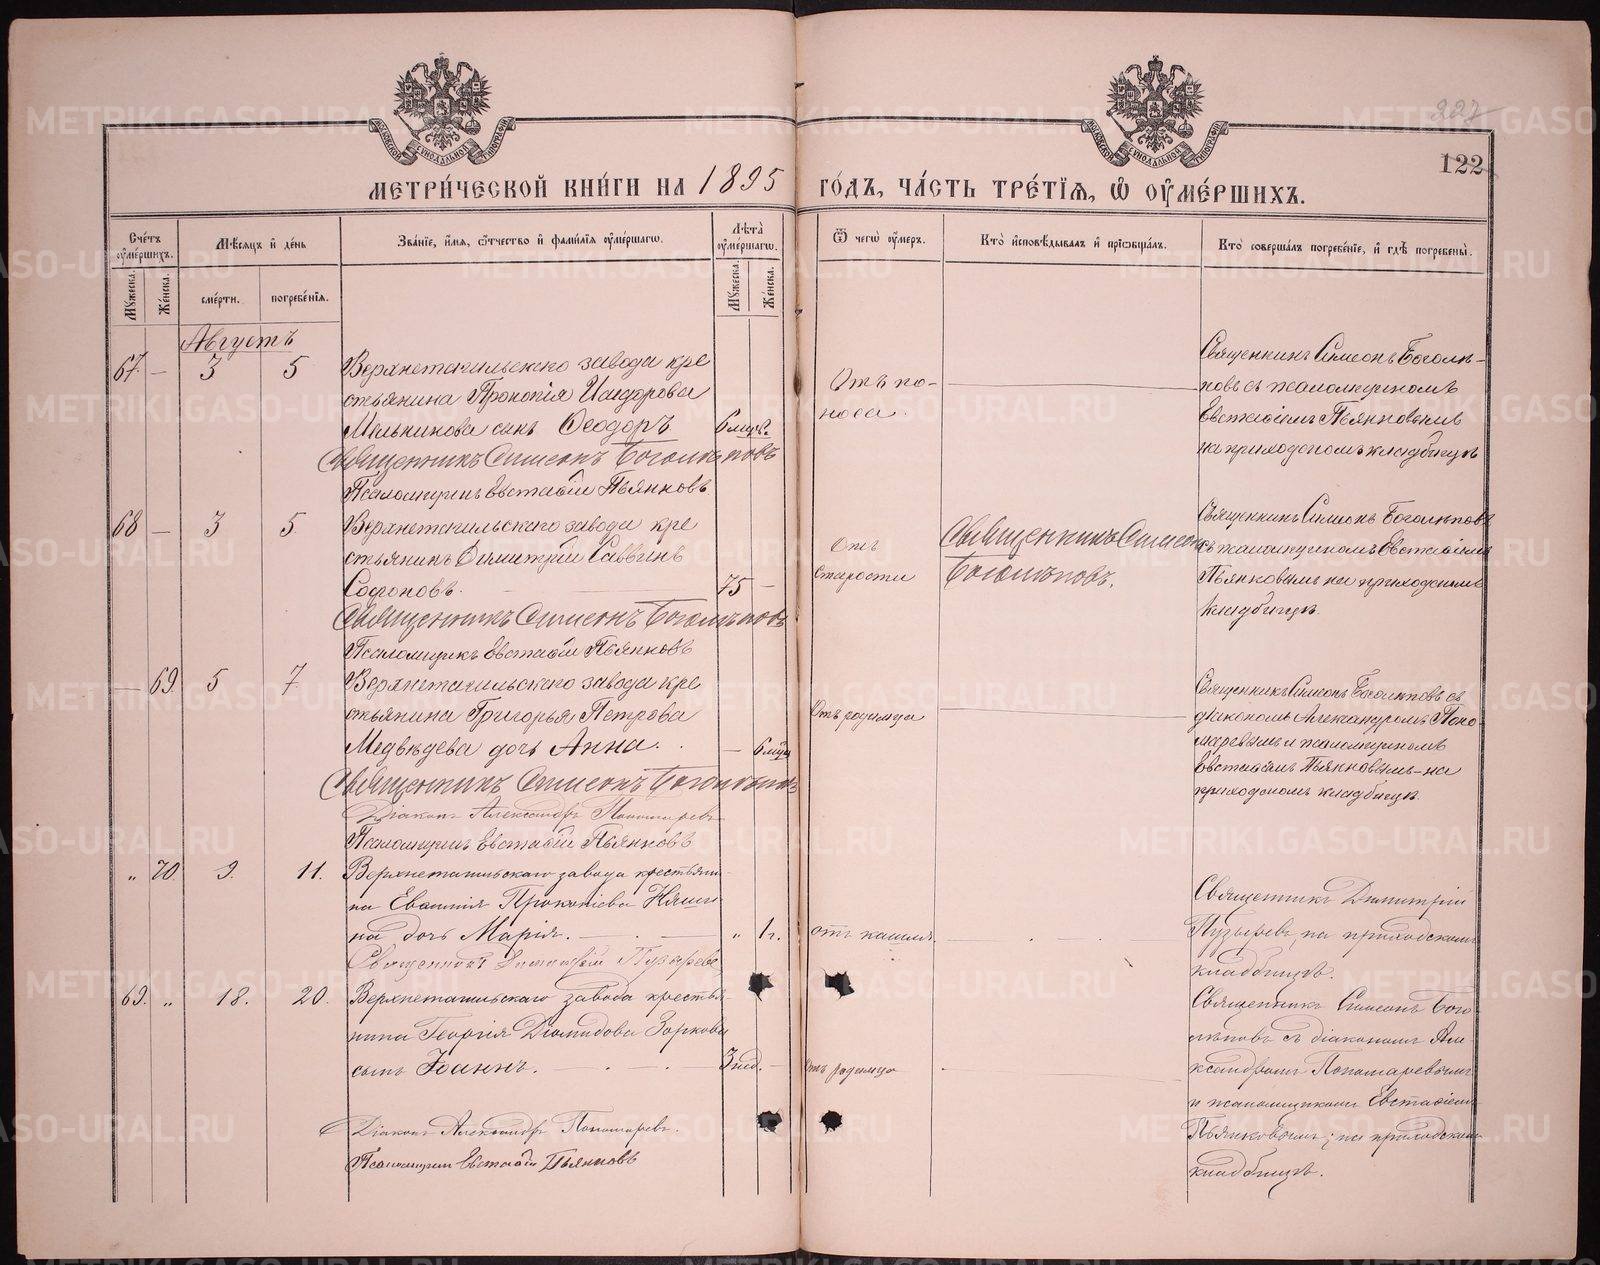 227
122
МОСКОВСКОЙ СѴНОДАЛЬНОЙ ТИПОГРАФІИ
МОСКОВСКОЙ СѴНОДАЛЬНОЙ ТИПОГРАФІИ
МЕТРИ́ЧЕСКОЙ КНИ́ГИ НА 1895 ГО́ДЪ, ЧА́СТЬ ТРЕ́ТІѦ, Ѡ҆ ОУ҆МЕ́РШИХЪ.
Сче́тъ оу҆ме́ршихъ.
Мѣ́сяцъ и҆ де́нь
Зва́нїе, и҆́мя, ѻ҆́тчество и҆ фами́лїя оу҆ме́ршагѡ.
Лѣ́та оу҆ме́ршагѡ.
Ѿ чегѡ̀ оу҆́меръ.
Кто̀ и҆сповѣ́дывалъ и҆ прїѡбща́лъ.
Кто̀ соверша́лъ погребе́нїе, и҆ гдѣ̀ погребены̀.
Мꙋжеска.
Же́нска.
сме́рти.
погребе́нїя.
Мꙋжеска.
Же́нска.
Августъ
67. — 3 5
Верхнетагильскаго завода кре
стьянина Прокопія Исидорова
Мельникова сынъ Ѳеодоръ 6 мцв.
Священникъ Симеонъ Боголѣповъ
Псаломщикъ Евстафій Пьянковъ
Отъ по-
носа.
Священникъ Симеонъ Боголѣ-
повъ съ псаломщикомъ
Евстафіемъ Пьянковымъ
на приходскомъ кладбищѣ
68 — 3 5.
Верхнетагильскаго завода кре
стьянинъ Димитрій Саввинъ
Софоновъ. 75 —
Священникъ Симеонъ Боголѣповъ
Псаломщикъ Евстафій Пьянковъ
Отъ
старости
Священникъ Симеонъ
Боголѣповъ.
Священникъ Симеонъ Боголѣповъ
съ псаломщикомъ Евстафіемъ
Пьянковымъ на приходскомъ
кладбищѣ.
— 69 5 7
Верхнетагильскаго завода кре
стьянина Григорья Петрова
Медвѣдева дочь Анна. — 6 мцв
Священникъ Симеонъ Боголѣповъ
Діаконъ Александръ Пономаревъ
Псаломщикъ Евстафій Пьянковъ
Отъ родимца
Священникъ Симеонъ Боголѣповъ съ
діакономъ Александромъ Поно-
маревымъ и псаломщикомъ
Евстафіемъ Пьянковымъ-на
приходскомъ кладбищѣ.
„ 70. 9. 11.
Верхнетагильскаго завода крестьяни-
на Евфимія Прокопіева Няши-
на дочь Марія. „ 1 г.
Священникъ Димитрій Пузыревъ
отъ кашля.
Священникъ Димитрій
Пузыревъ, на приходскомъ
кладбищѣ.
69. „ 18. 20.
Верхнетагильскаго завода крестья-
нина Георгія Діомидова Зоркова
сынъ Іоаннъ. 3 нед. —
Діаконъ Александръ Пономаревъ.
Псаломщикъ Евстафій Пьянковъ
отъ родимца
Священникъ Симеонъ Бого-
лѣповъ съ діакономъ Але-
ксандромъ Пономаревымъ
и псаломщикомъ Евстафіемъ
Пьянковымъ, на приходскомъ
кладбищѣ.
METRIKI.GASO-URAL.RU